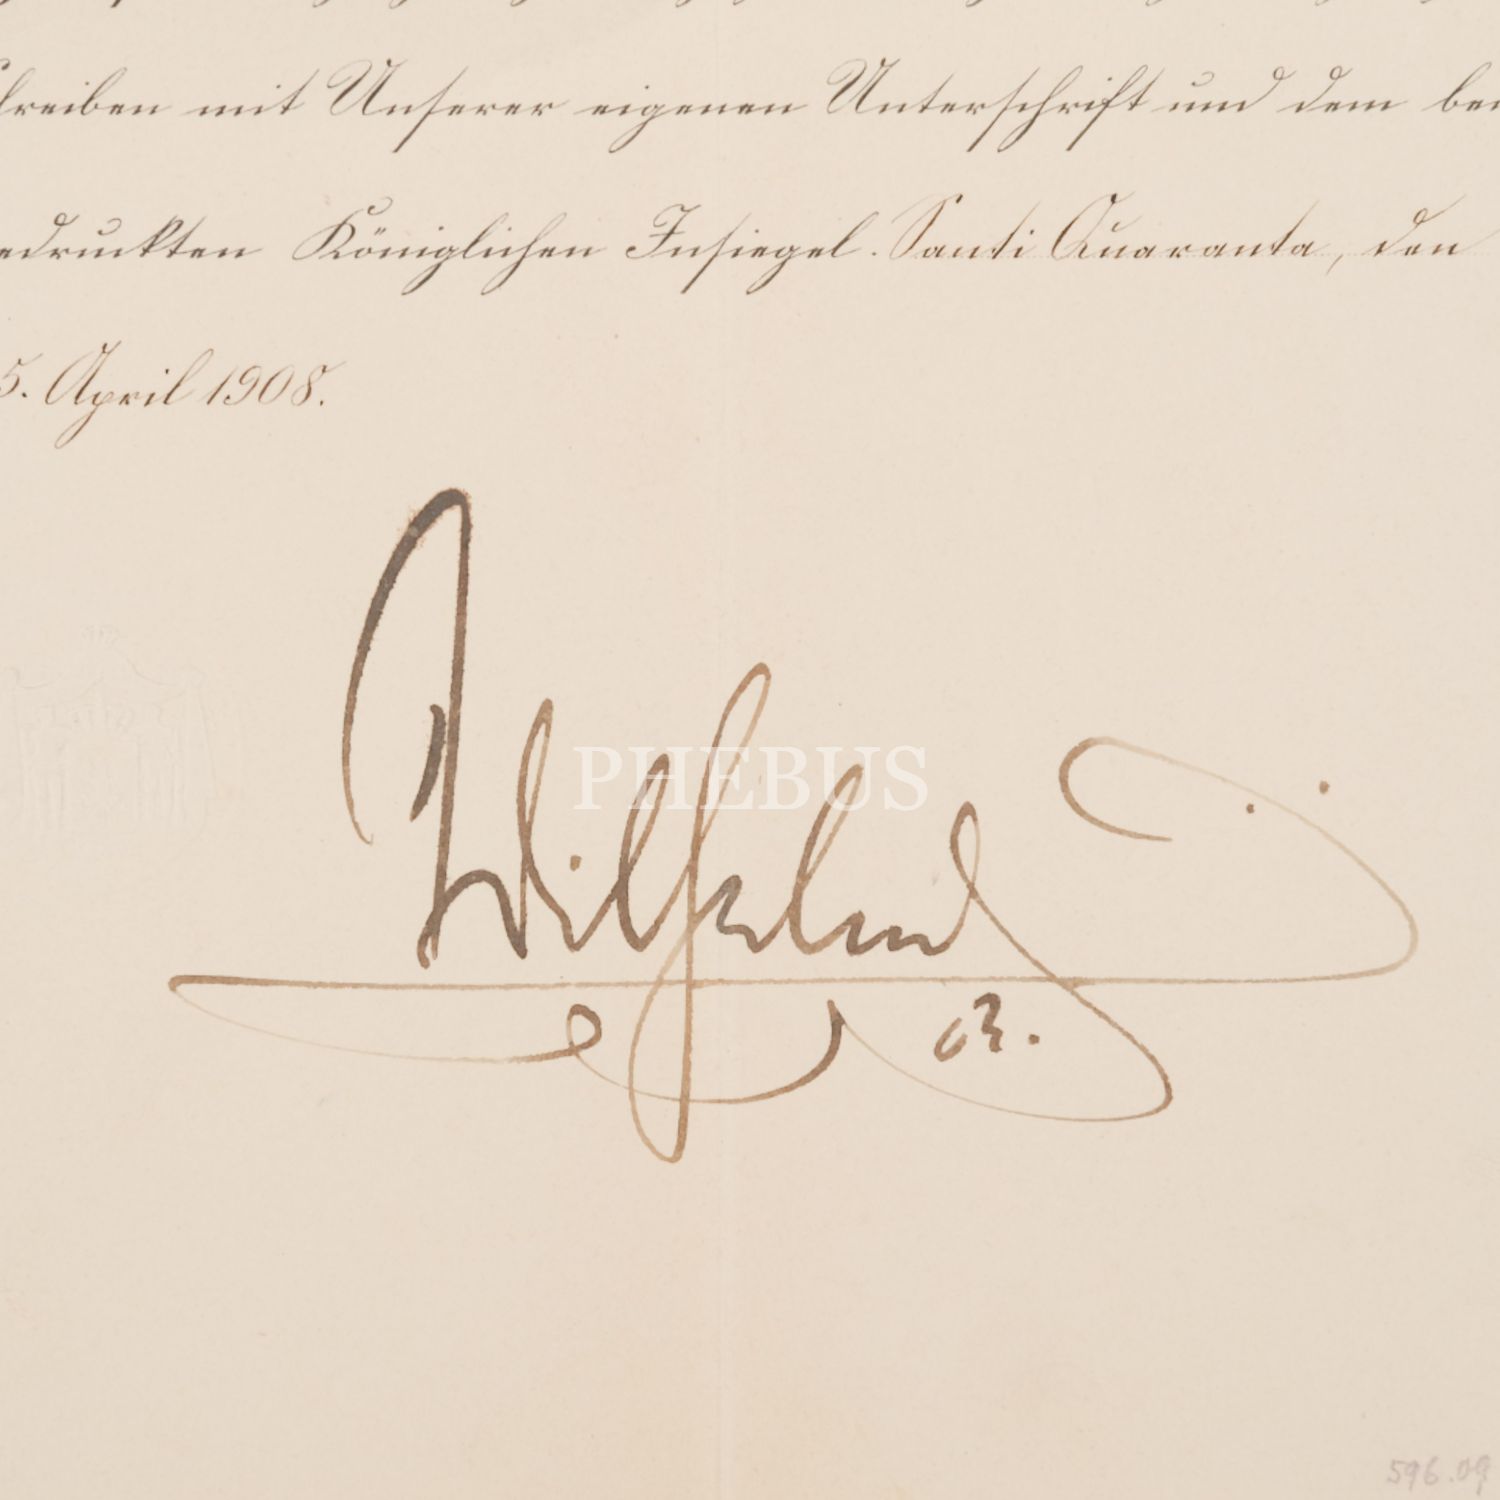 schreiben mit Unserer eigenen Unterschrift und dem bei-
gedruckten Königlichen Insiegel. Santi Quaranta, den
5. April 1908.
Wilhelm
PHEBUS
R.
596.09